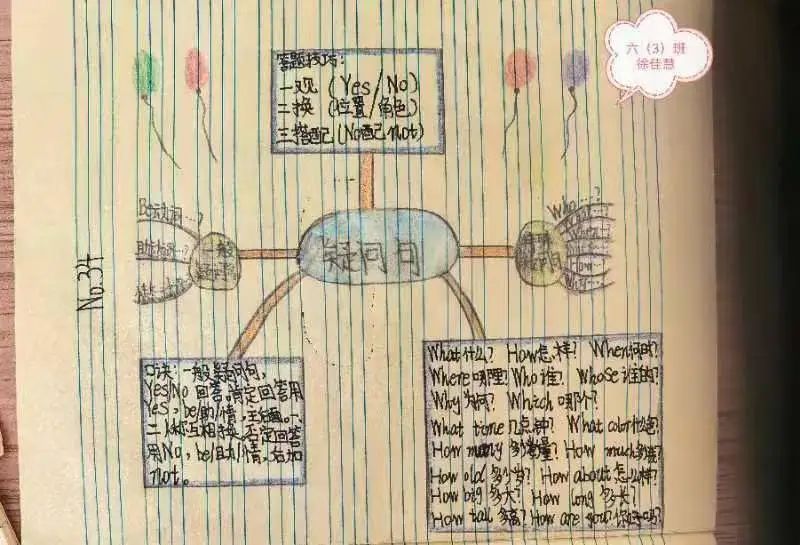 六（3）班
徐佳慧
答题技巧：
一观（Yes/No）
二换（位置/角色）
三搭配（No配not）
疑问句
Be动词…?
一般
特殊
Who…?
How…
No.34
口诀：一般疑问句，
Yes/No 回答。肯定回答用
Yes，be/助/情，主
二人称互相换，否定回答
用No，be/助/情，后加
not。
What什么？ How怎样？ When何时？
Where哪里？ Who谁？ Whose谁的？
Why为何？ Which哪个？
What time几点钟？ What color什么色？
How many多数量？ How much多
How old多少岁？ How about怎么样？
How big多大？ How long多长？
How tall多高？ How are you？你好吗？